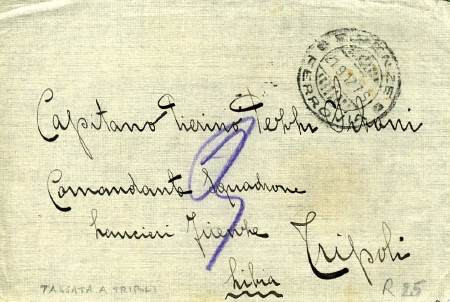 FIRENZE
FERROVIA
Capitano Pierino
Comandante Squadrone
Lancieri Firenze
Tripoli
Libia
TASSATA A TRIPOLI
R 25